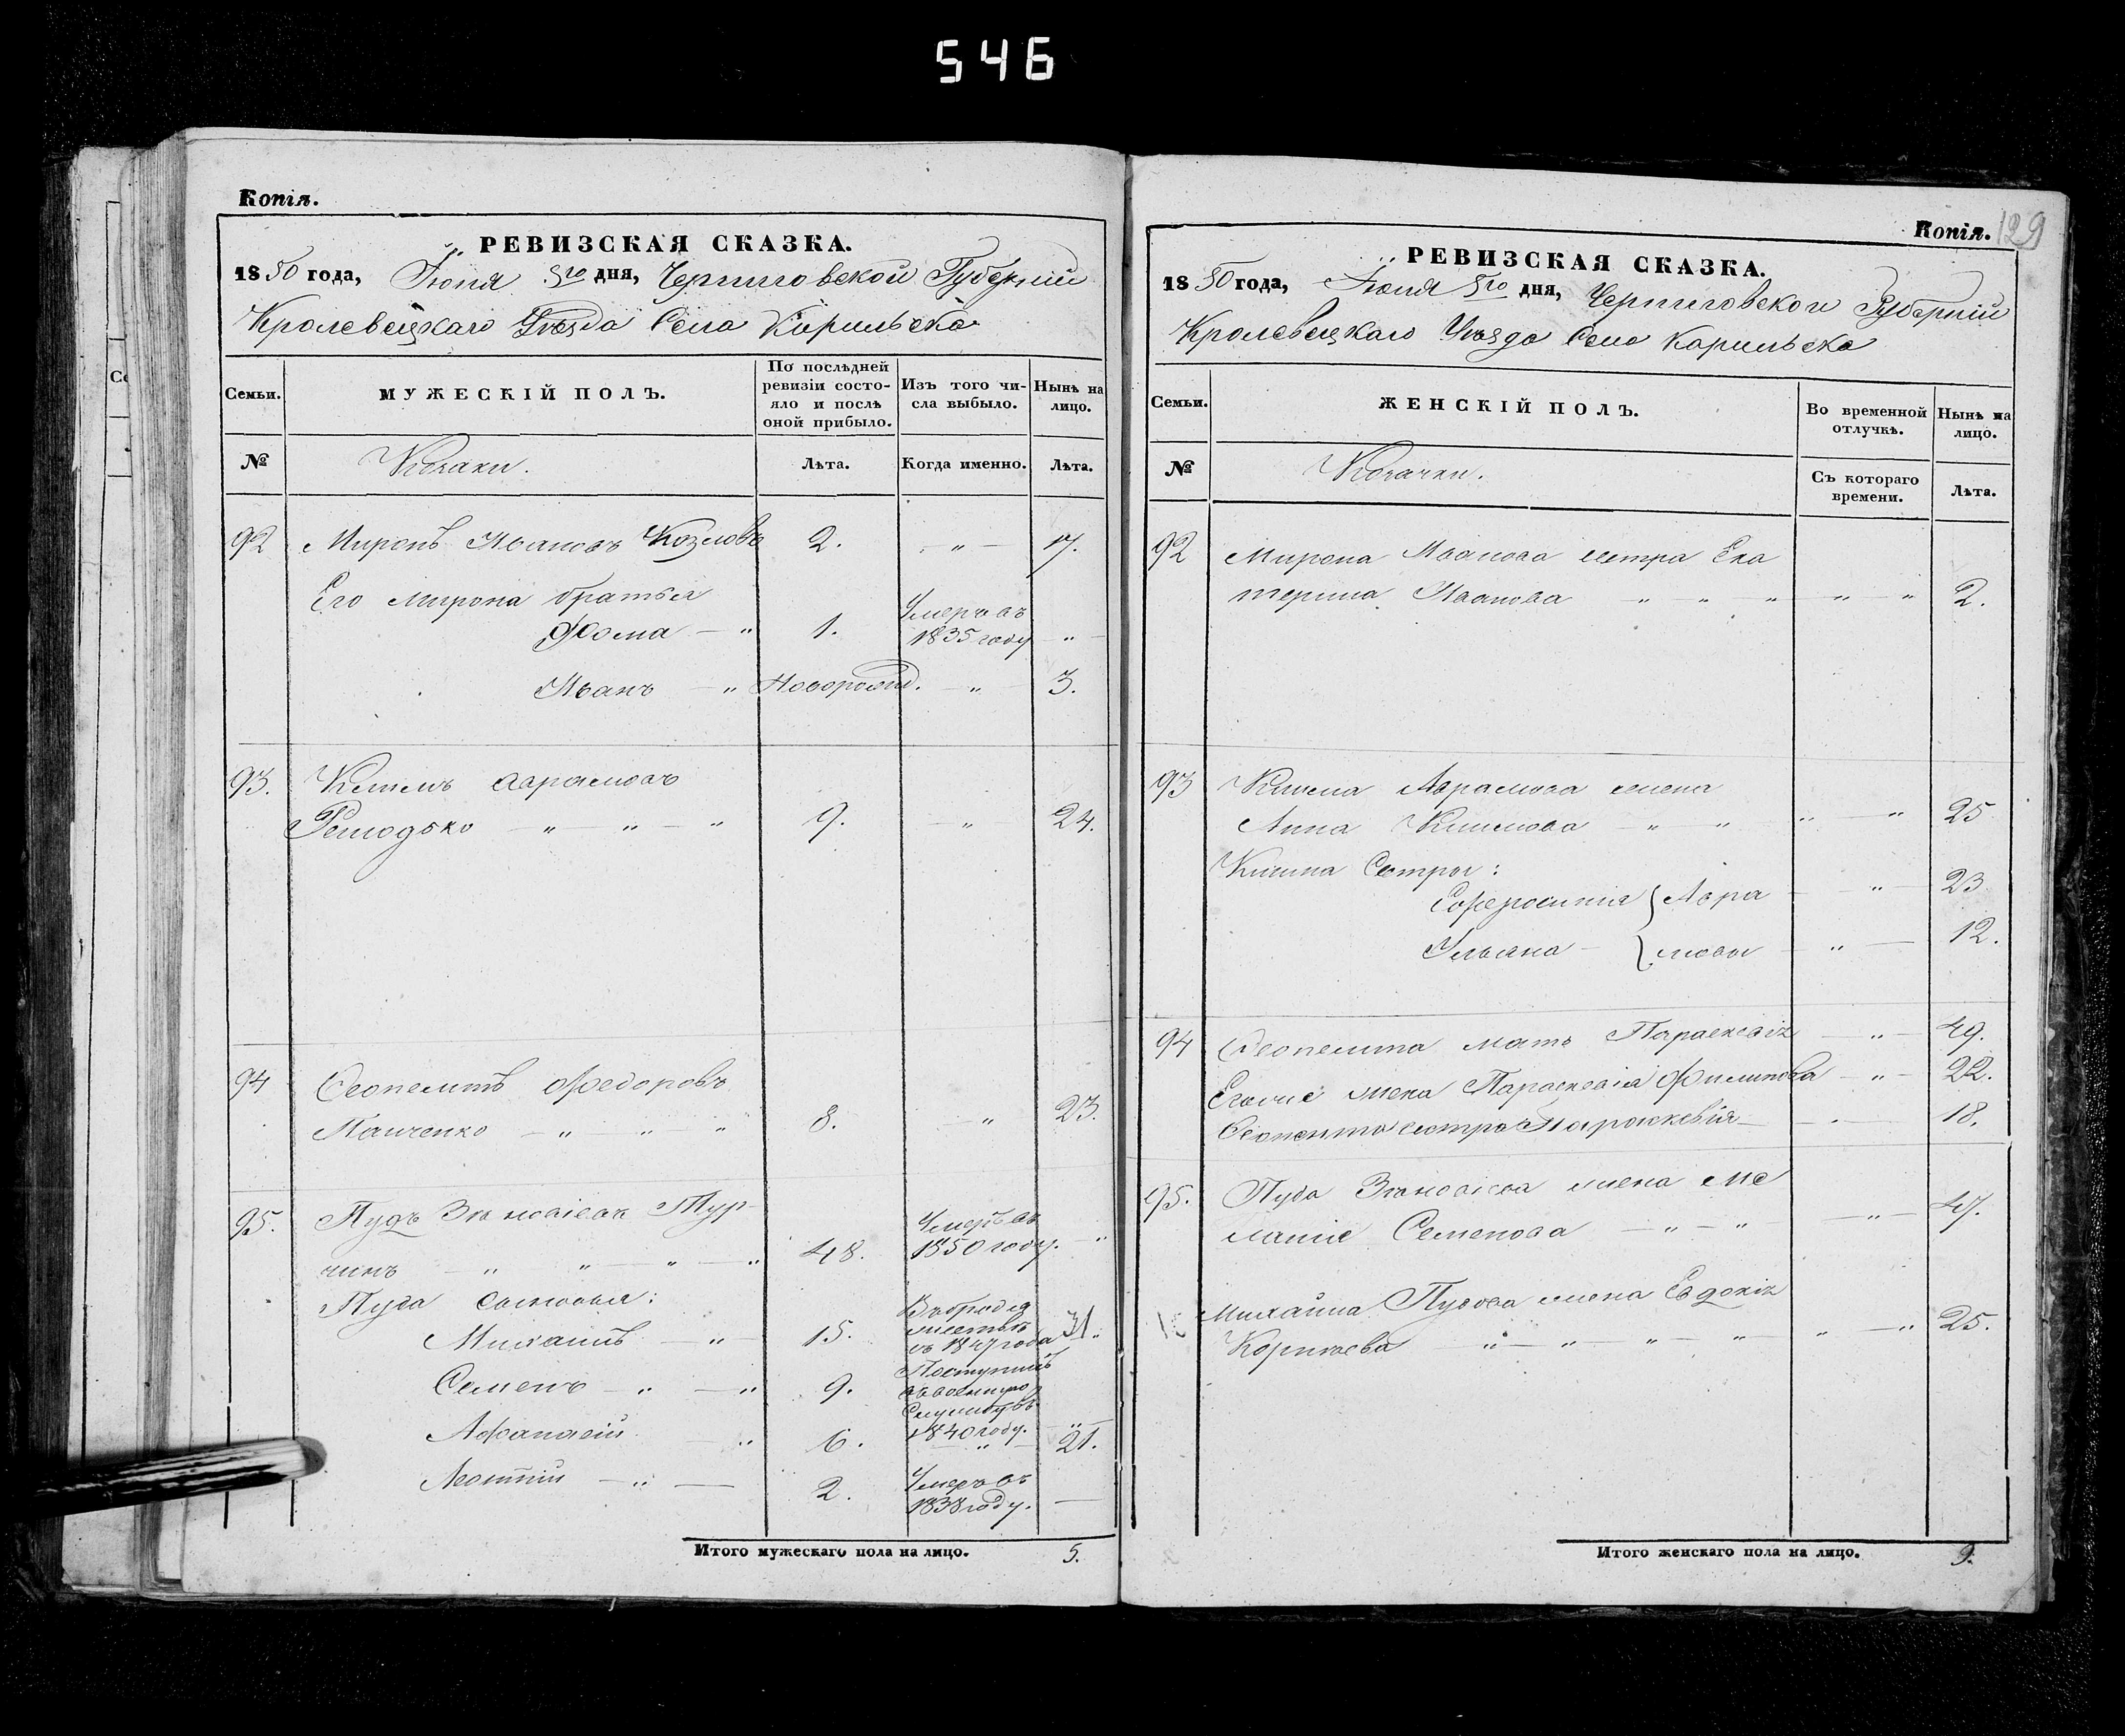 546
Копія.
РЕВИЗСКАЯ СКАЗКА.
1850 года, Іюня 5го дня, Черниговской Губерніи
Кролевецкаго Уѣзда Села Карильска
Семьи.
МУЖЕСКІЙ ПОЛЪ.
По послѣдней ревизіи состояло и послѣ оной прибыло.
Изъ того числа выбыло.
Нынѣ на лицо.
№
Козаки.
Лѣта.
Когда именно.
Лѣта.
92 Миронъ Ивановъ Козловъ 2. — „ — 17.
Его Мирона братья
Фома — „ 1. Умеръ въ 1835 году „
Иванъ — „ Новорожд. — „ 3.
93. Климъ Аврамовъ
Ремодько — „ — „ — „ 9. — „ 24.
94 Феопемптъ Федоровъ
Панченко — „ — „ — „ 8. — „ 23.
95. Пудъ Зѣновіевъ Тур-
чинъ — „ „ — „ — „ 48. Умеръ въ 1850 году. — „
Пуда сыновья:
Михаилъ — „ — 15. Въ бродяжествѣ съ 1847 года 31.
Семенъ — „ — „ 9. Поступилъ въ военную службу въ 1840 году. „
Афанасій — „ 6. — „ — 21.
Леонтій — „ — 2. Умеръ въ 1838 году. —
Итого мужескаго пола на лицо. 5.
Копія. 129
РЕВИЗСКАЯ СКАЗКА.
1850 года, Іюня 5го дня, Черниговской Губерніи
Кролевецкаго Уѣзда Села Карильска
Семьи.
ЖЕНСКІЙ ПОЛЪ.
Во временной отлучкѣ.
Нынѣ на лицо.
№
Козачки.
Съ котораго времени.
Лѣта.
92 Мирона Иванова сестра Ека
терина Иванова „ „ „ „ — „ 2.
93 Клима Аврамова жена
Анна Климова — „ — „ „ „ 25
Клима Сестры:
Евфросинія } Авра — „ — 23
Ульяна — } мовы — „ — 12.
94 Феопемпта мать Параскевія — „ — 49.
Егоже жена Параскевія Филипова — „ — 22.
Феопемпта сестра Параскевія — — 18.
95. Пуда Зѣновіева жена Ме
ланія Семенова — „ — „ — „ — 47.
Михаила Пудова жена Евдокія
Корнѣева „ — „ — „ — „ „ — „ 25.
Итого женскаго пола на лицо. 9.